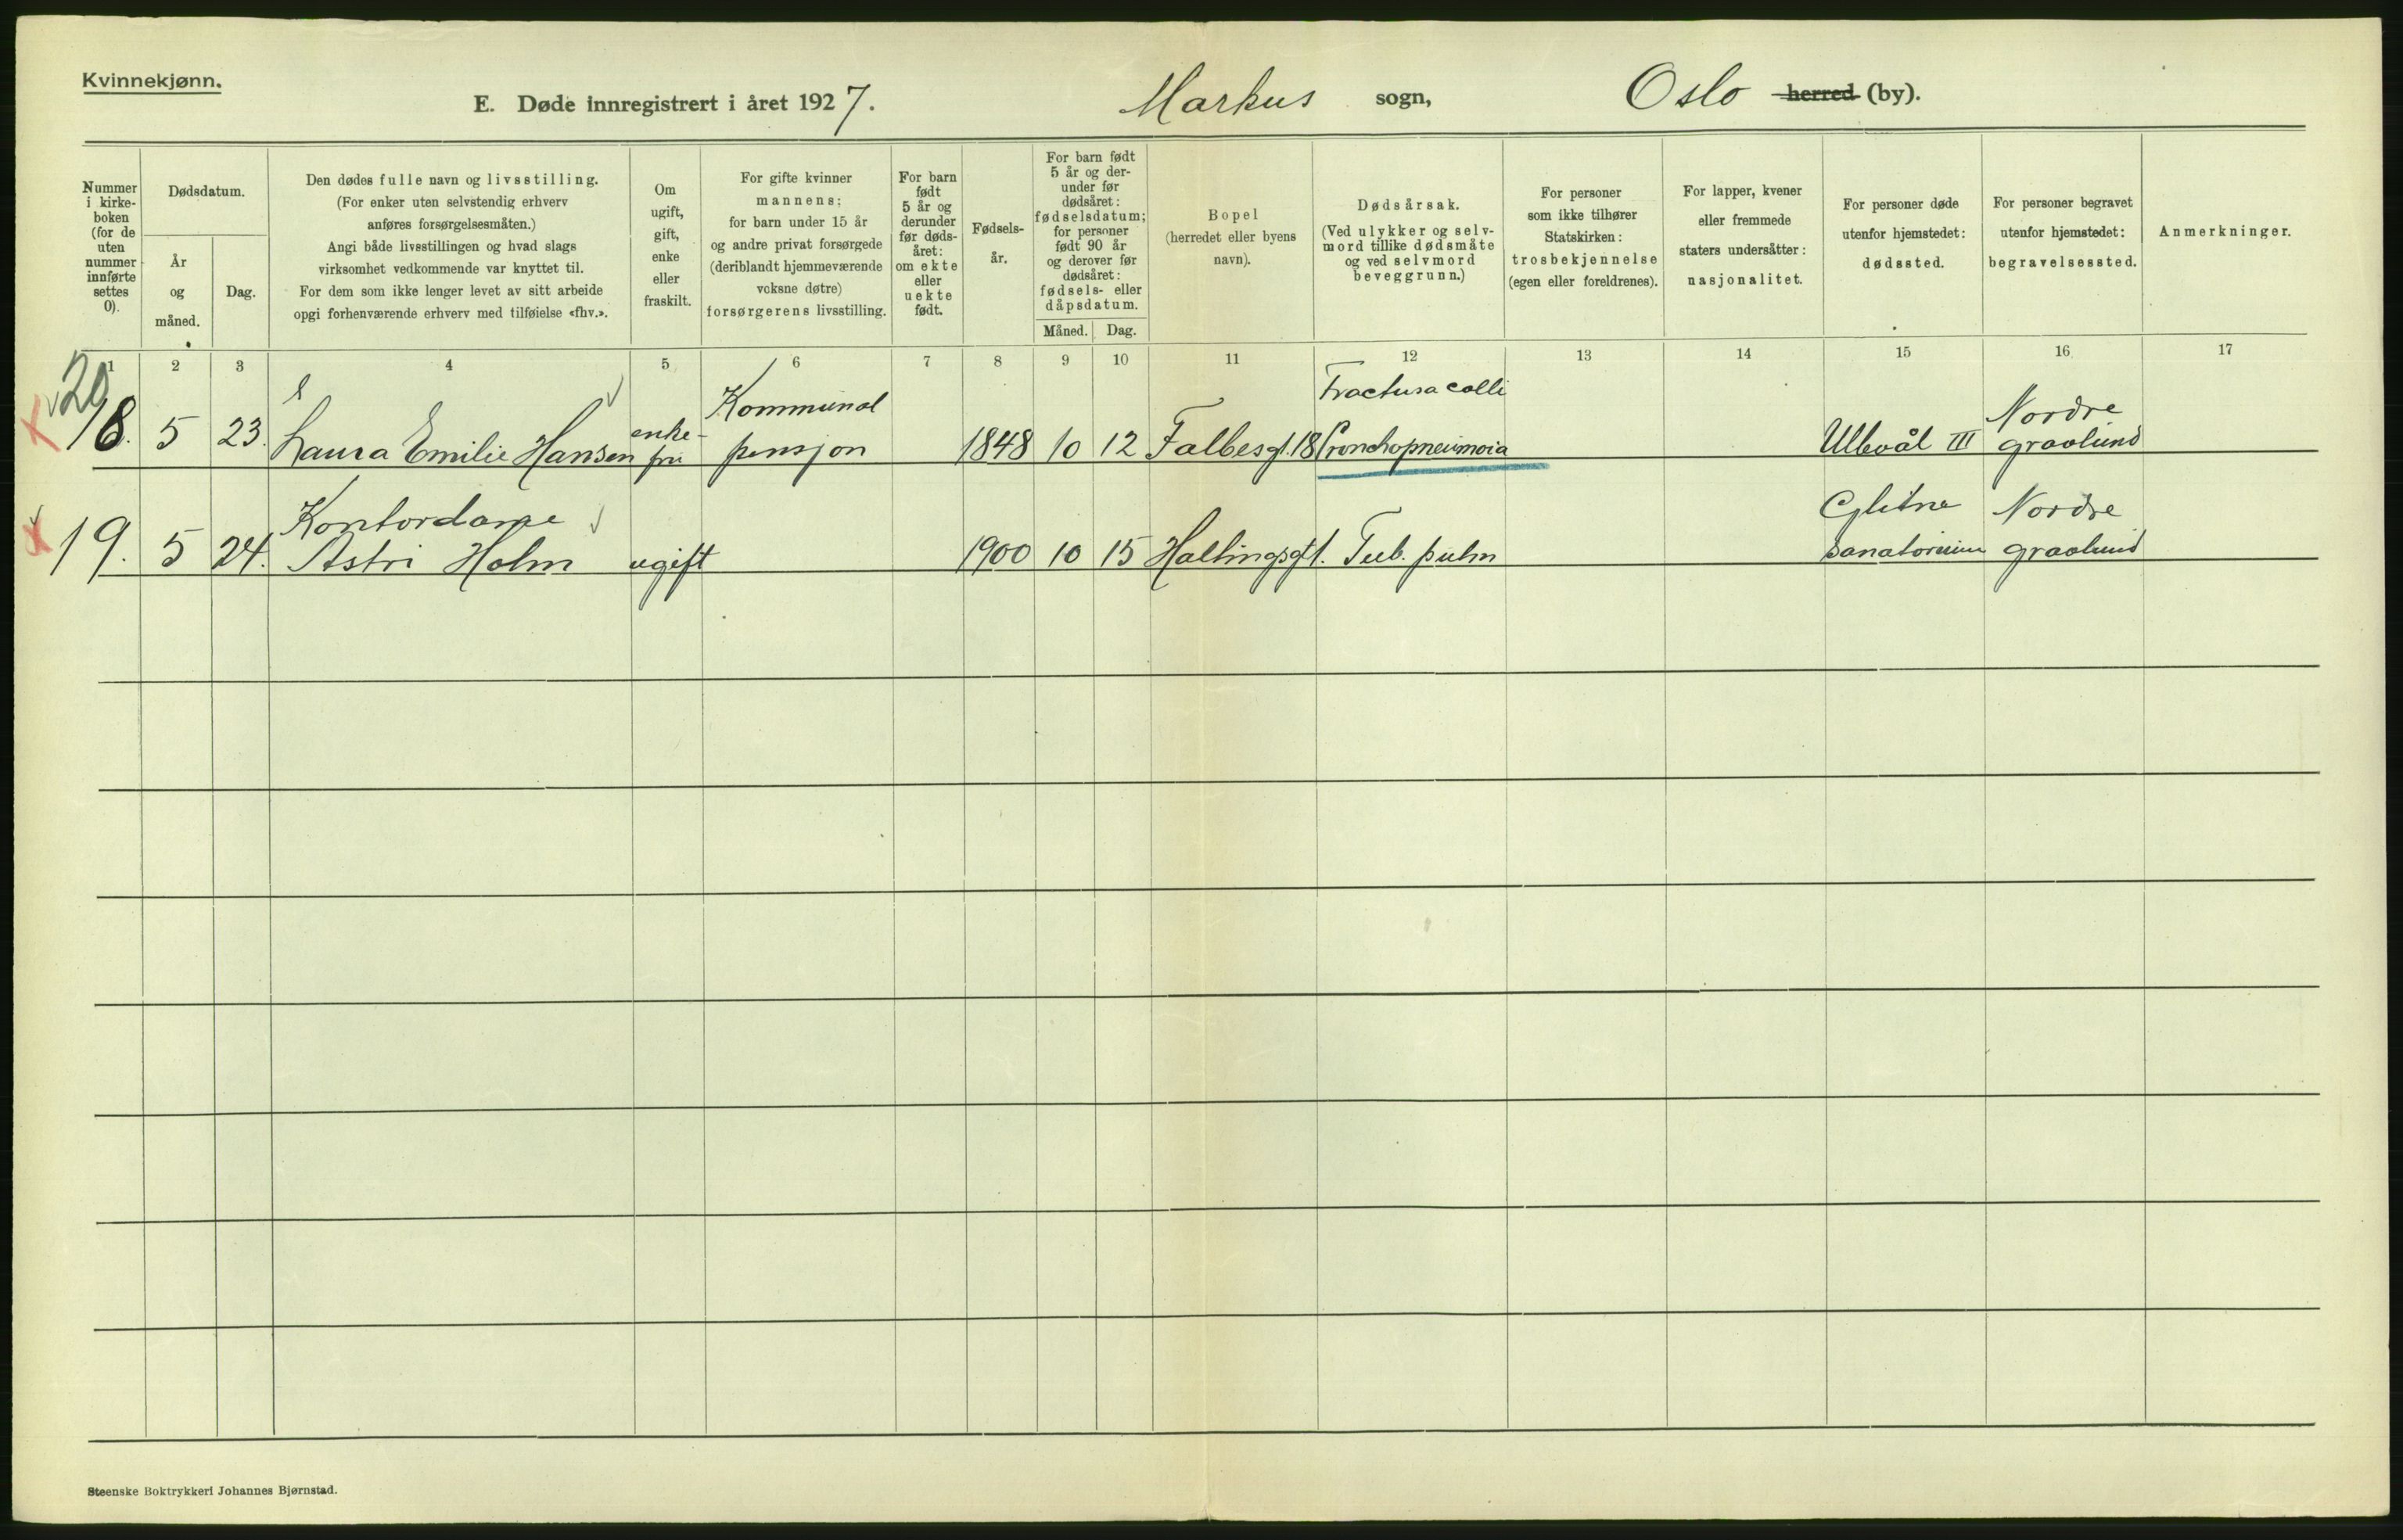 Kvinnekjønn.
E. Døde innregistrert i året 1927. Markus sogn, Oslo herred (by).
Nummer i kirke-boken (for de uten nummer innførte settes 0).
Dødsdatum.
År og måned.
Dag.
Den dødes fulle navn og livsstilling.
(For enker uten selvstendig erhverv
anføres forsørgelsesmåten.)
Angi både livsstillingen og hvad slags
virksomhet vedkommende var knyttet til.
For dem som ikke lenger levet av sitt arbeide
opgi forhenværende erhverv med tilføielse «fhv.».
Om
ugift,
gift,
enke
eller
fraskilt.
For gifte kvinner
mannens;
for barn under 15 år
og andre privat forsørgede
(deriblandt hjemmeværende
voksne døtre)
forsørgerens livsstilling.
For barn
født
5 år og
derunder
før døds-
året:
om ekte
eller
uekte
født.
Fødsels-
år.
For barn født
5 år og der-
under før
dødsåret:
fødselsdatum;
for personer
født 90 år
og derover før
dødsåret:
fødsels- eller
dåpsdatum.
Måned. Dag.
Bopel
(herredet eller byens
navn).
Dødsårsak.
(Ved ulykker og selv-
mord tillike dødsmåte
og ved selvmord
beveggrunn.)
For personer
som ikke tilhører
Statskirken:
trosbekjennelse
(egen eller foreldrenes).
For lapper, kvener
eller fremmede
staters undersåtter:
nasjonalitet.
For personer døde
utenfor hjemstedet:
dødssted.
For personer begravet
utenfor hjemstedet:
begravelsessted.
Anmerkninger.
1 2 3 4 5 6 7 8 9 10 11 12 13 14 15 16 17
20
Kommunal Fractura colli Nordre
18. 5 23. Laura Emilie Hansen enke-fru pensjon 1848 10 12 Falbesgt. 18 Bronchopneumoia Ullevål III gravlund
Kontordame Glitne Nordre
19. 5 24. Astri Holm ugift 1900 10 15 Hallingsgt 1. Tub. pulm sanatorium gravlund
Steenske Boktrykkeri Johannes Bjørnstad.